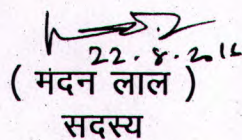 22.8.2016
( मंदन लाल )
सदस्य